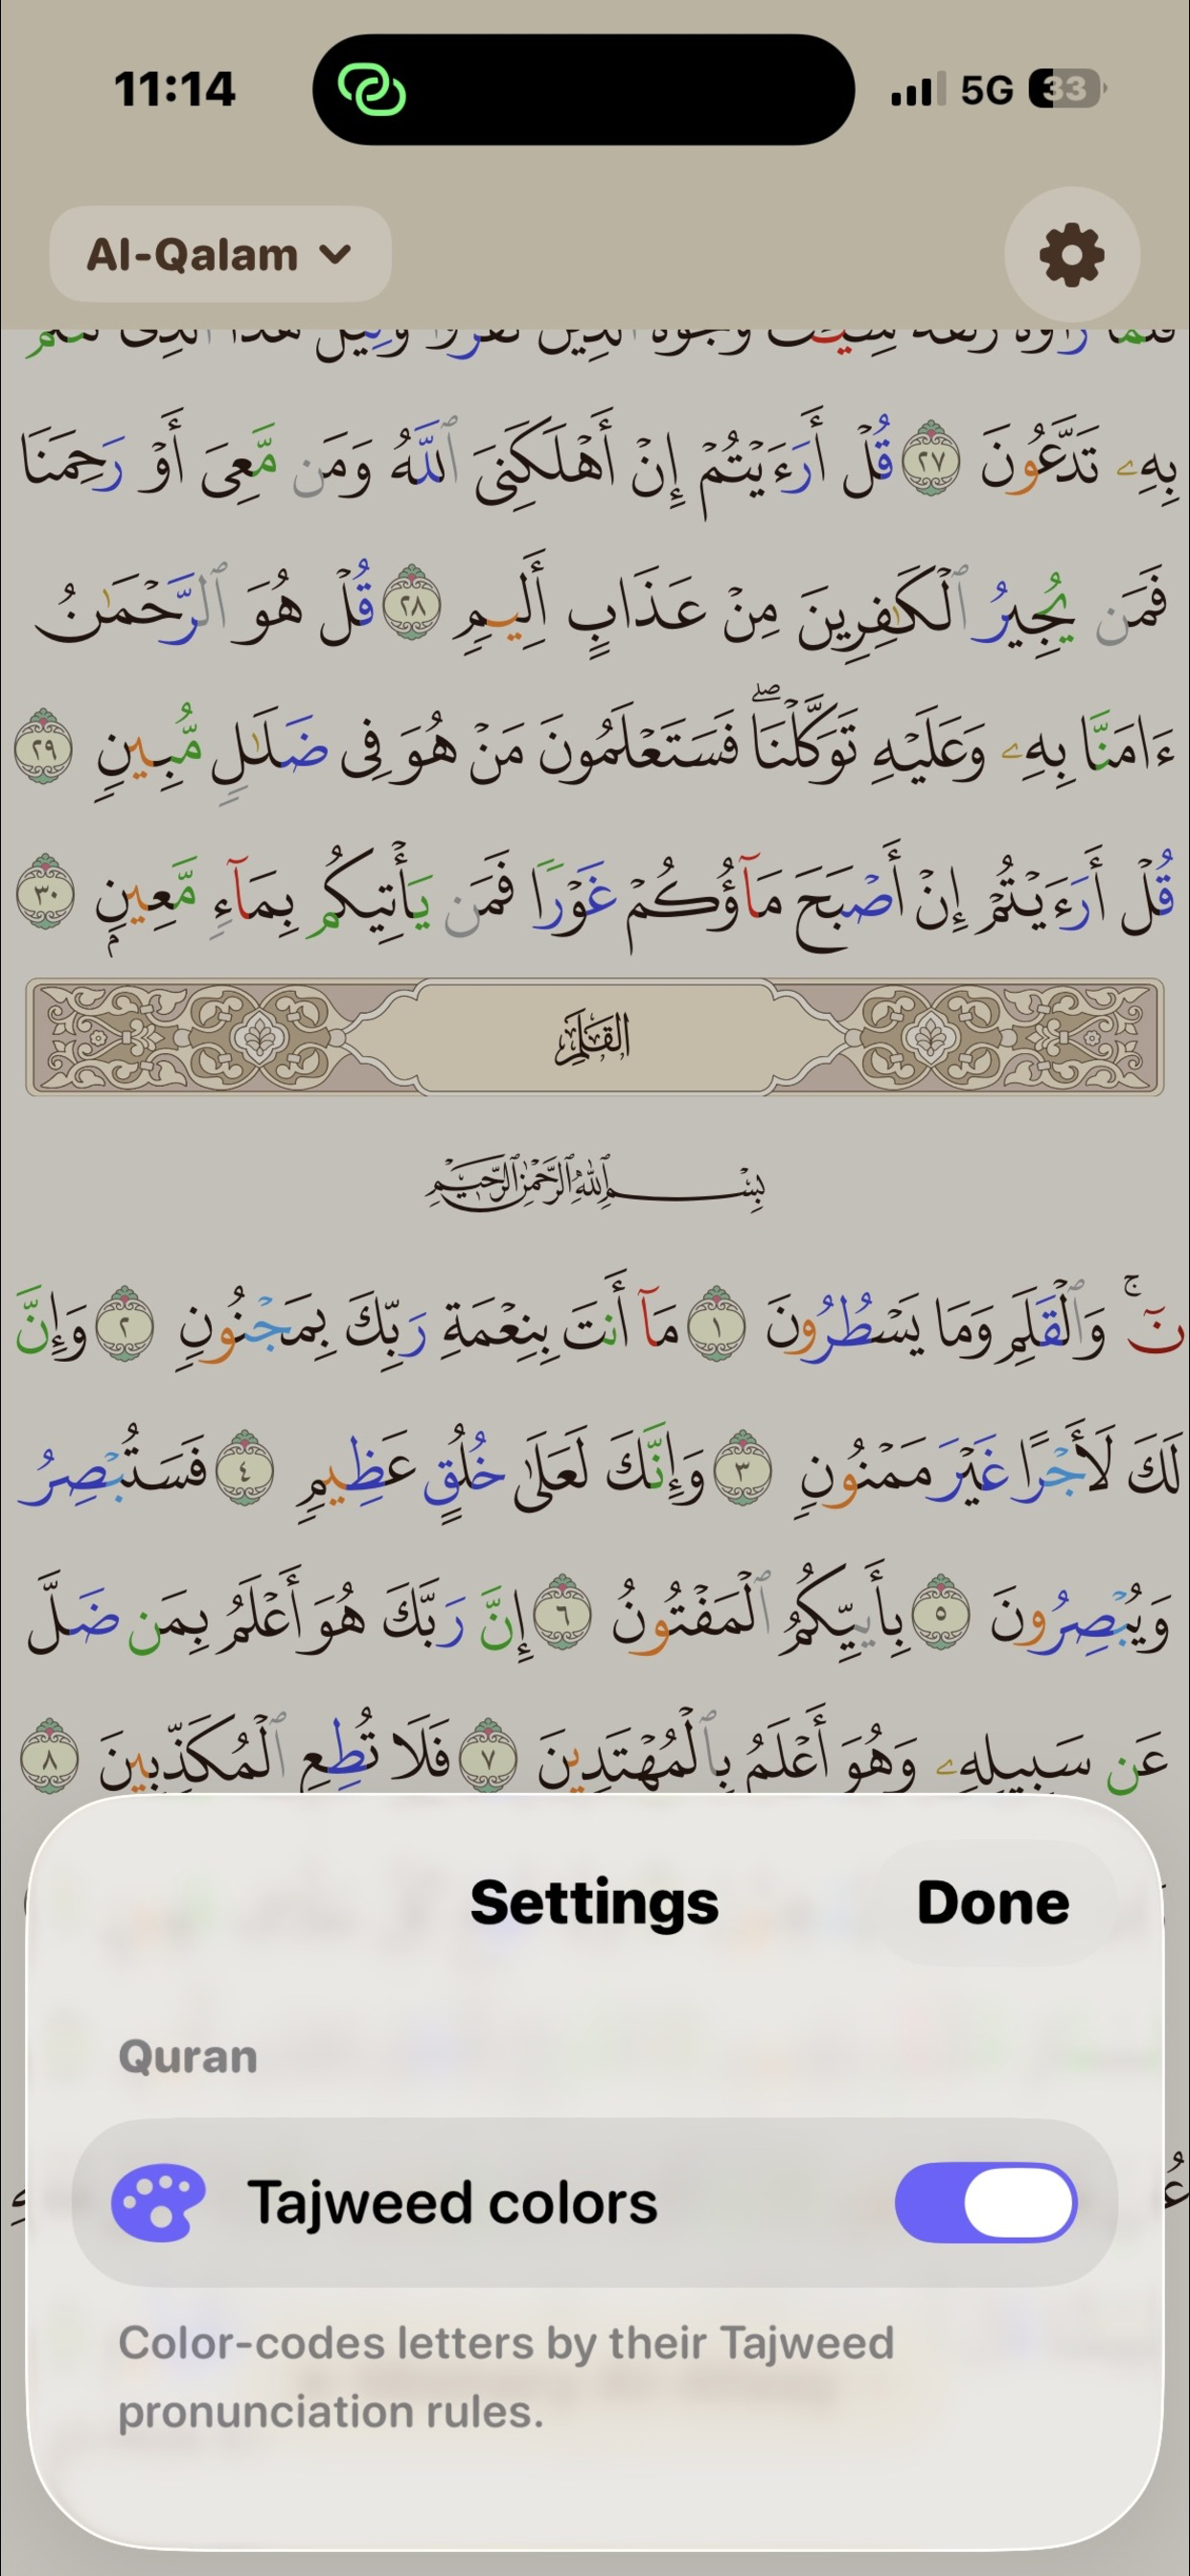 11:14
5G 33
Al-Qalam
بِهِۦ تَدَّعُونَ ٢٧ قُلْ أَرَءَيْتُمْ إِنْ أَهْلَكَنِىَ ٱللَّهُ وَمَن مَّعِىَ أَوْ رَحِمَنَا
فَمَن يُجِيرُ ٱلْكَٰفِرِينَ مِنْ عَذَابٍ أَلِيمٍ ٢٨ قُلْ هُوَ ٱلرَّحْمَٰنُ
ءَامَنَّا بِهِۦ وَعَلَيْهِ تَوَكَّلْنَاۖ فَسَتَعْلَمُونَ مَنْ هُوَ فِى ضَلَٰلٍ مُّبِينٍ ٢٩
قُلْ أَرَءَيْتُمْ إِنْ أَصْبَحَ مَآؤُكُمْ غَوْرًا فَمَن يَأْتِيكُم بِمَآءٍ مَّعِينٍۭ ٣٠
القلم
بِسْمِ ٱللَّهِ ٱلرَّحْمَٰنِ ٱلرَّحِيمِ
نٓۚ وَٱلْقَلَمِ وَمَا يَسْطُرُونَ ١ مَآ أَنتَ بِنِعْمَةِ رَبِّكَ بِمَجْنُونٍ ٢ وَإِنَّ
لَكَ لَأَجْرًا غَيْرَ مَمْنُونٍ ٣ وَإِنَّكَ لَعَلَىٰ خُلُقٍ عَظِيمٍ ٤ فَسَتُبْصِرُ
وَيُبْصِرُونَ ٥ بِأَييِّكُمُ ٱلْمَفْتُونُ ٦ إِنَّ رَبَّكَ هُوَ أَعْلَمُ بِمَن ضَلَّ
عَن سَبِيلِهِۦ وَهُوَ أَعْلَمُ بِٱلْمُهْتَدِينَ ٧ فَلَا تُطِعِ ٱلْمُكَذِّبِينَ ٨
Settings Done
Quran
Tajweed colors
Color-codes letters by their Tajweed
pronunciation rules.